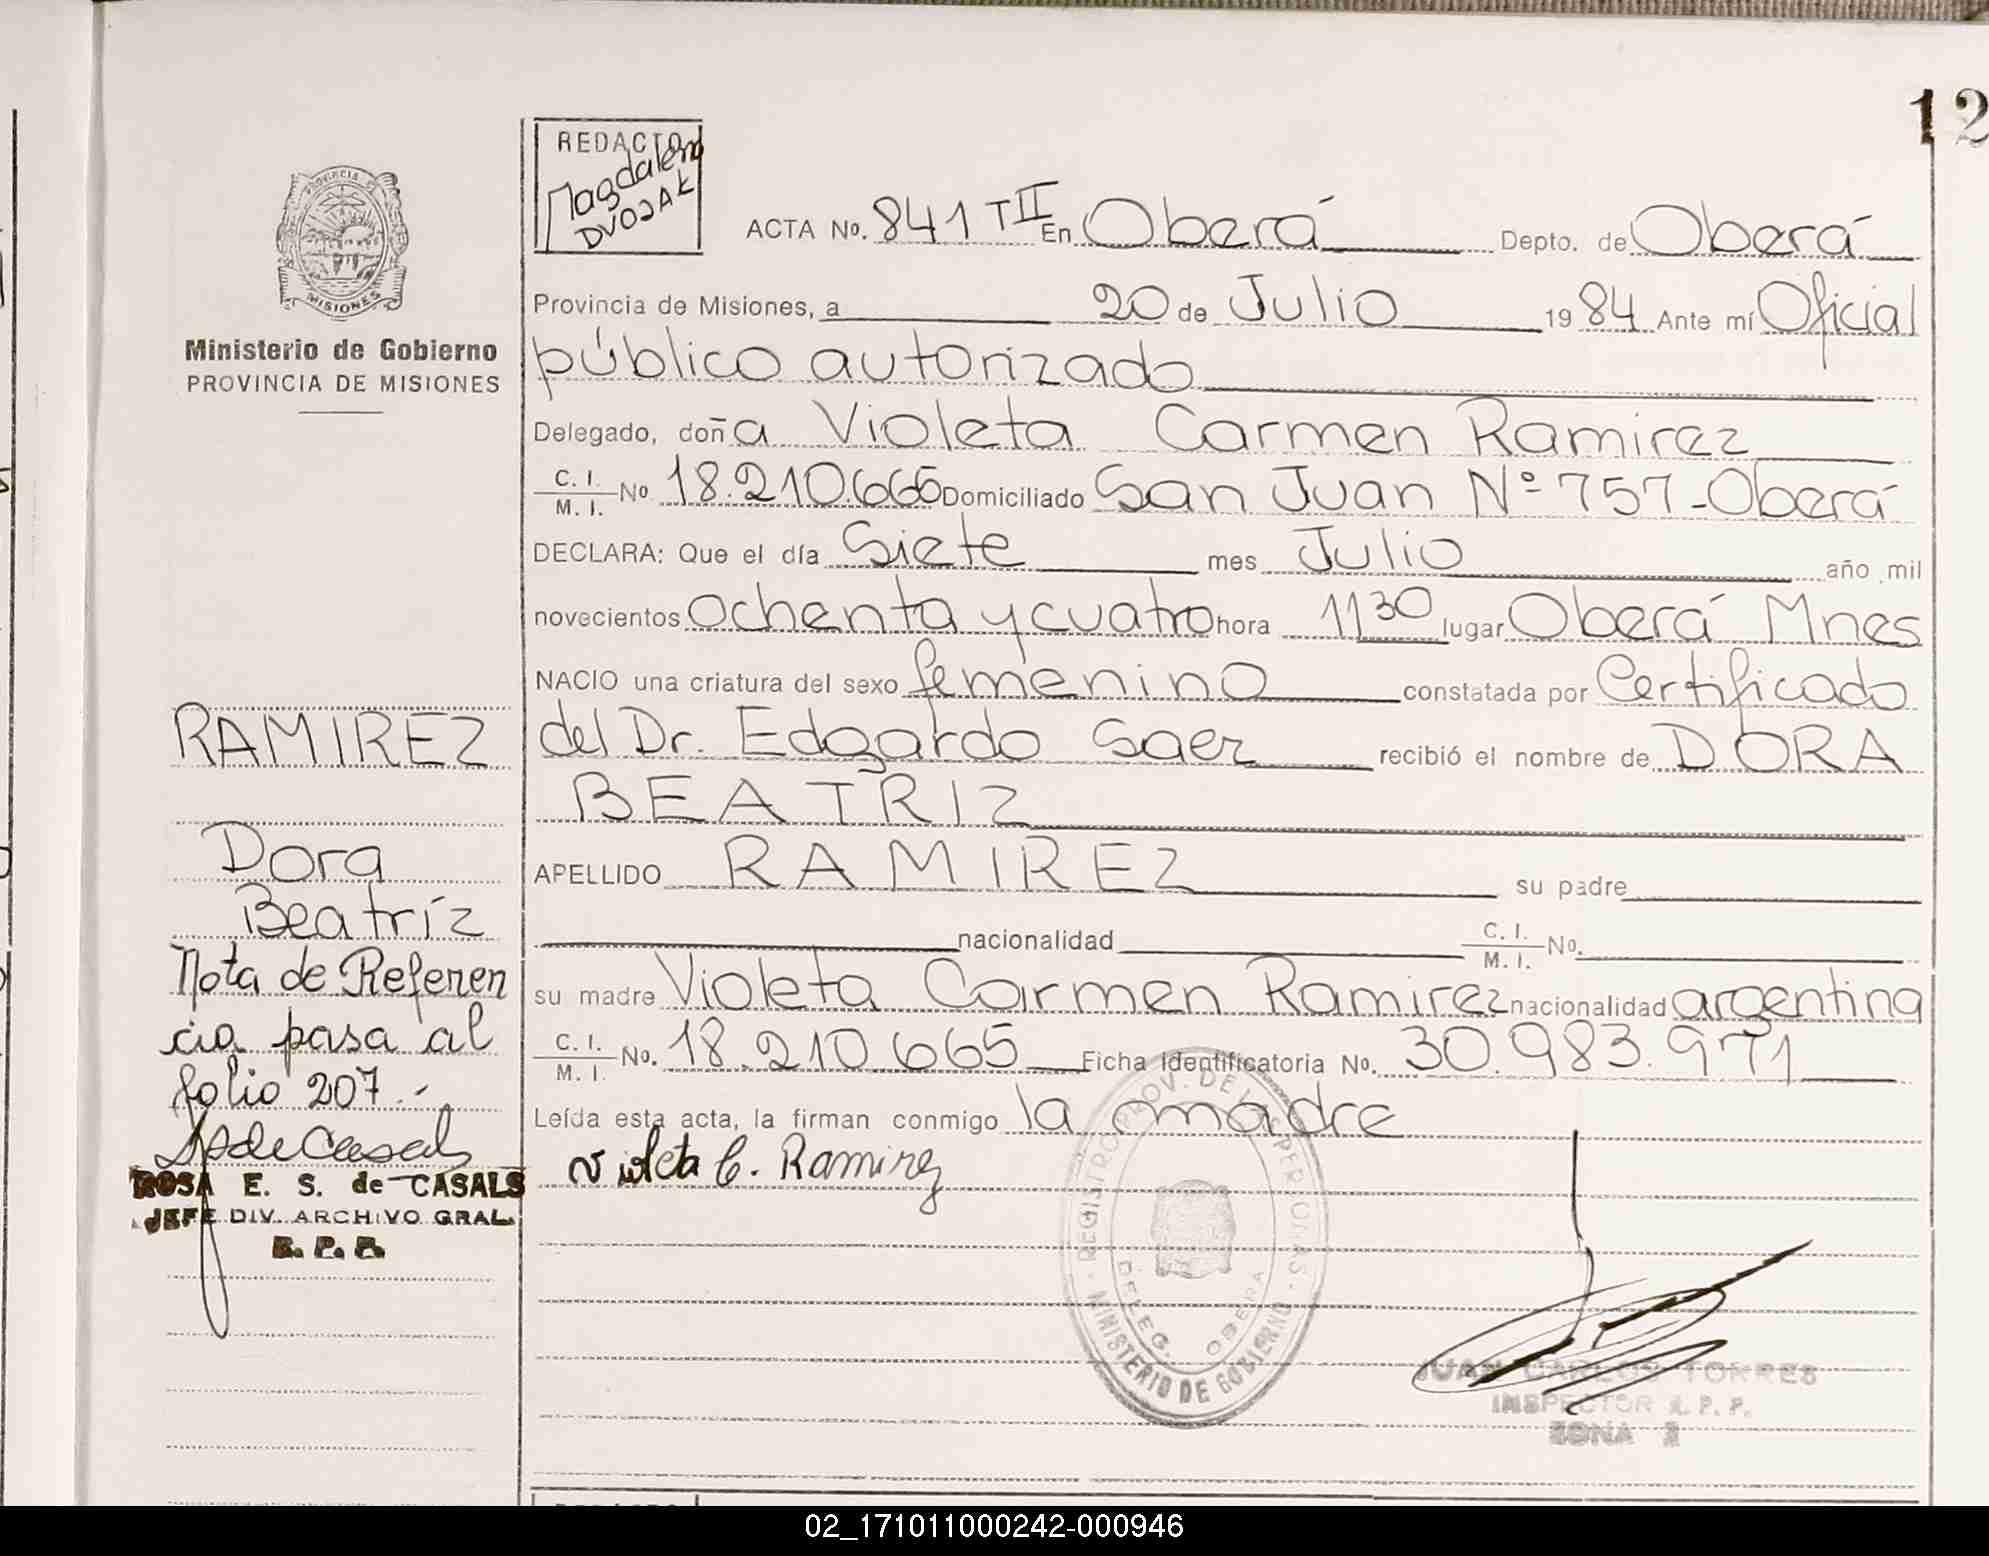 12
REDACTO
Magdalena
DVOJAK
ACTA No. 841 T II En Oberá Depto. de Oberá
PROVINCIA DE
MISIONES
Ministerio de Gobierno
PROVINCIA DE MISIONES
Provincia de Misiones, a 20 de Julio 1984 Ante mí Oficial
público autorizado
Delegado, doña Violeta Carmen Ramirez
C. I. M. I. No 18.210.665 Domiciliado San Juan Nº 757-Oberá
DECLARA: Que el día Siete mes Julio año mil
novecientos Ochenta y cuatro hora 11 30 lugar Oberá Mnes
NACIO una criatura del sexo femenino constatada por Certificado
del Dr. Edgardo Saez recibió el nombre de DORA
BEATRIZ
APELLIDO RAMIREZ su padre
nacionalidad C. I. M. I. No.
su madre Violeta Carmen Ramirez nacionalidad argentina
C. I. M. I. No. 18.210.665 Ficha Identificatoria No. 30.983.971
Leída esta acta, la firman conmigo la madre
Violeta C. Ramirez
RAMIREZ
Dora
Beatríz
Nota de Referen
cia pasa al
folio 207.-
ROSA E. S. de CASALS
JEFE DIV. ARCHIVO GRAL.
R. P. P.
REGISTRO PROV. DE LAS PERSONAS
MINISTERIO DE GOBIERNO
DELEG. OBERA
JUAN CARLOS TORRES
INSPECTOR R. P. P.
ZONA 2
02_171011000242-000946